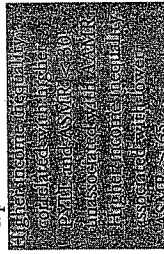 Higher income inequality
correlated with higher
PYLL and ASMR (<30)
unassociated with ASMR
Higher income inequality
associated with lower